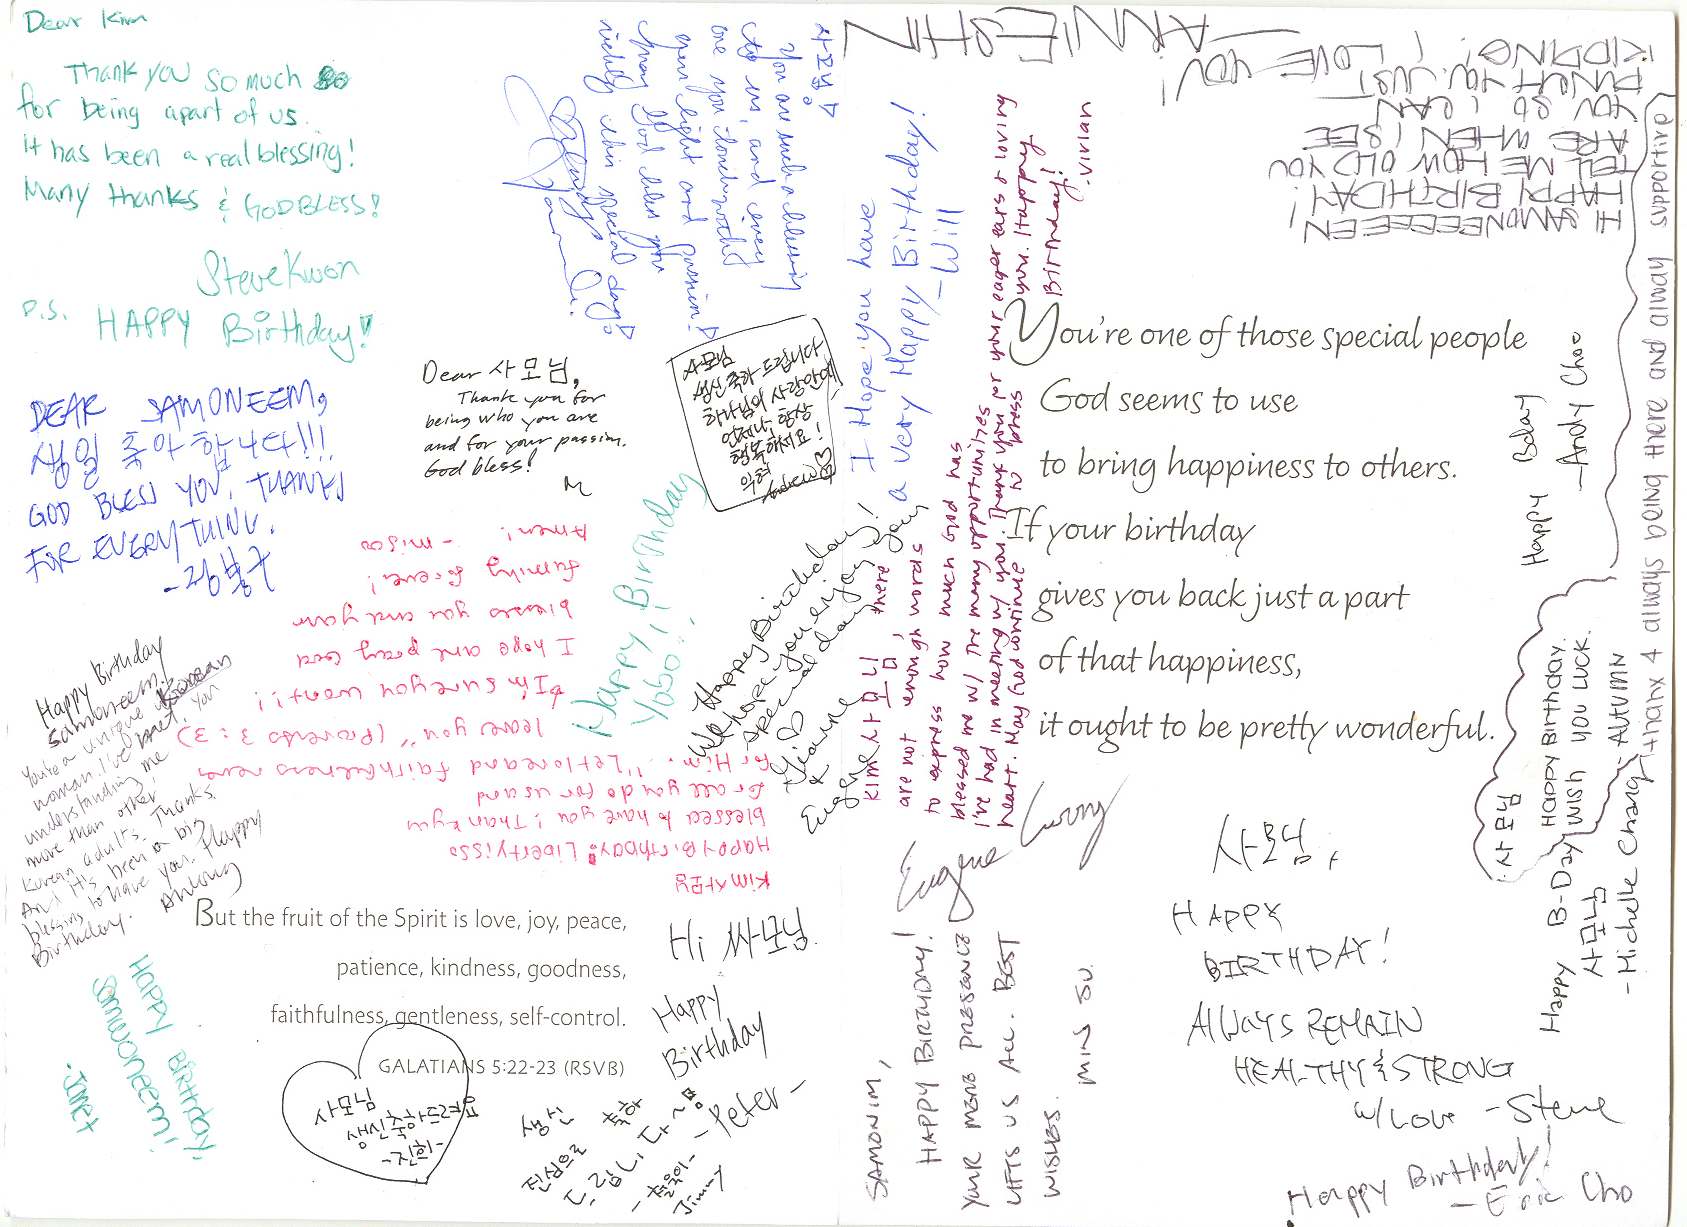 Dear Kim
Thank you so much
for being apart of us.
it has been a real blessing!
Many thanks & GOD BLESS!
Steve Kwon
P.S. HAPPY Birthday!
사모님!
You are such a blessing
to us, and every
one you touch with
your light and passion!
May God bless you
richly this special day!
DEAR SAMONEEM,
생일 축아합니다!!!
GOD BLESS YOU. THANKS
FOR EVERYTHING.
Dear 사모님,
Thank you for
being who you are
and for your passion.
God bless!
M
사모님
생신 축하 드립니다
하나님의 사랑안에
언제나 항상
행복하세요!
익현
Andrew
Happy Birthday
Yobo!
Kim 사모님
Happy Birthday! Liberty is so
blessed to have you! Thank you
for all you do for us and
for Him. "Let love and faithfulness never
leave you" (Proverbs 3:3)
I'm sure you won't!!
I hope and pray God
blesses you and your
family forever!
Amen! - misoo
Happy Birthday
Samoneem!
You're a unique Korean
woman I've met. You
understanding me
more than other
Korean adults. Thanks.
And it's been a big
blessing to have you. Happy
Birthday.
HAPPY BIRTHDAY
Samwoneem!
-Janet
But the fruit of the Spirit is love, joy, peace,
patience, kindness, goodness,
faithfulness, gentleness, self-control.
GALATIANS 5:22-23 (RSVB)
사모님
생신축하드려요
-진희-
Hi 싸모님.
Happy
Birthday
-Peter-
생신 축하
진심으로
드립니다~
Jimmy
Happy Birthday!
We hope you enjoy your
special day!
Dianne
&
Eugene
I Hope you have
a very Happy Birthday!
-Will
Kim 사모님, there
are not enough words
to express how much God has
blessed me w/ the many opportunities
I've had in meeting w/ you. Thank you for your eager ears & loving
heart. May God continue to bless you. Happy
Birthday!
-Vivian
HI SAMONEEEEEEEEN
HAPPY BIRTHDAY!
TELL ME HOW OLD YOU
ARE WHEN I SEE
YOU SO I CAN
PUNCH YOU. JUST
KIDDING!
I LOVE YOU!
You're one of those special people
God seems to use
to bring happiness to others.
If your birthday
gives you back just a part
of that happiness,
it ought to be pretty wonderful.
Happy Bday
-Andy Choo
thanx 4 always being there and alway supportive
사모님
HAPPY BIRTHDAY.
WISH YOU LUCK.
-AUTUMN
Happy B-Day
사모님
- Michelle Chang
Eugene
SAMONIM,
HAPPY BIRTHDAY!
YOUR MERE PRESENCE
LIFTS US ALL. BEST
WISHES.
MIN SU.
사모님,
HAPPY
BIRTHDAY!
ALWAYS REMAIN
HEALTHY & STRONG
w/ Love - Steve
Happy Birthday!
- Eric Cho